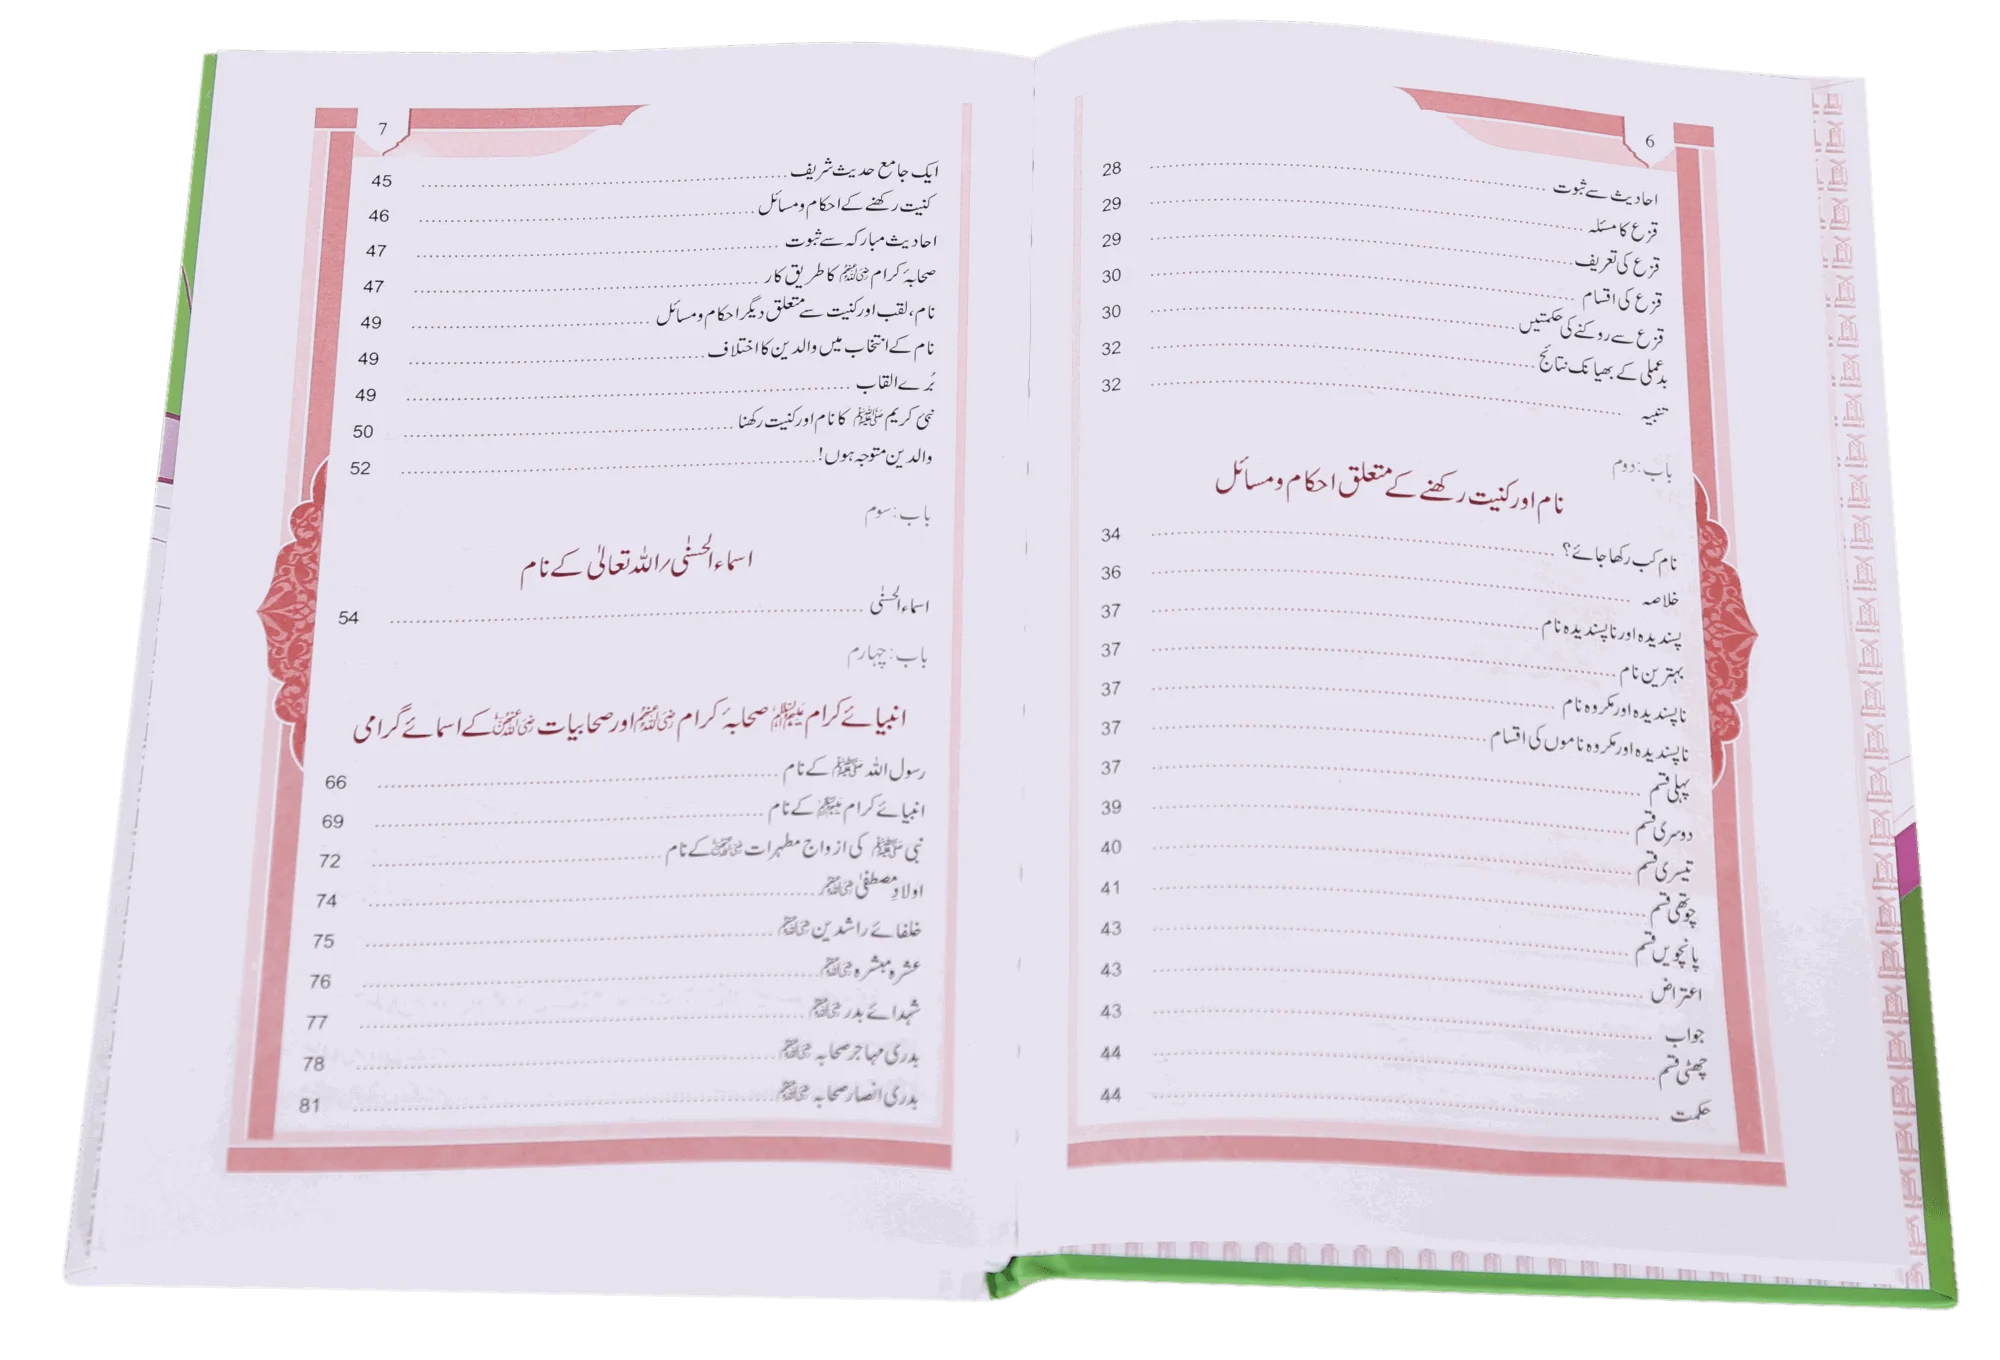 6
احادیث سے ثبوت 28
قزع کا مسئلہ 29
قزع کی تعریف 29
قزع کی اقسام 30
قزع سے روکنے کی حکمتیں 30
بدعملی کے بھیانک نتائج 32
تنبیہ 32
باب: دوم
نام اور کنیت رکھنے کے متعلق احکام و مسائل
نام کب رکھا جائے؟ 34
خلاصہ 36
پسندیدہ اور ناپسندیدہ نام 37
بہترین نام 37
ناپسندیدہ اور مکروہ نام 37
ناپسندیدہ اور مکروہ ناموں کی اقسام 37
پہلی قسم 37
دوسری قسم 39
تیسری قسم 40
چوتھی قسم 41
پانچویں قسم 43
اعتراض 43
جواب 43
چھٹی قسم 44
حکمت 44
7
ایک جامع حدیث شریف 45
کنیت رکھنے کے احکام و مسائل 46
احادیث مبارکہ سے ثبوت 47
صحابۂ کرام رضی اللہ عنہم کا طریق کار 47
نام، لقب اور کنیت سے متعلق دیگر احکام و مسائل 49
نام کے انتخاب میں والدین کا اختلاف 49
بُرے القاب 49
نبیٔ کریم ﷺ کا نام اور کنیت رکھنا 50
والدین متوجہ ہوں! 52
باب: سوم
اسماء الحسنٰی / اللہ تعالیٰ کے نام
اسماء الحسنٰی 54
باب: چہارم
انبیائے کرام علیہم السلام صحابۂ کرام رضی اللہ عنہم اور صحابیات رضی اللہ عنہن کے اسمائے گرامی
رسول اللہ ﷺ کے نام 66
انبیائے کرام علیہم السلام کے نام 69
نبی ﷺ کی ازواج مطہرات رضی اللہ عنہن کے نام 72
اولادِ مصطفیٰ رضی اللہ عنہم 74
خلفائے راشدین رضی اللہ عنہم 75
عشرہ مبشرہ رضی اللہ عنہم 76
شہدائے بدر رضی اللہ عنہم 77
بدری مہاجر صحابہ رضی اللہ عنہم 78
بدری انصار صحابہ رضی اللہ عنہم 81